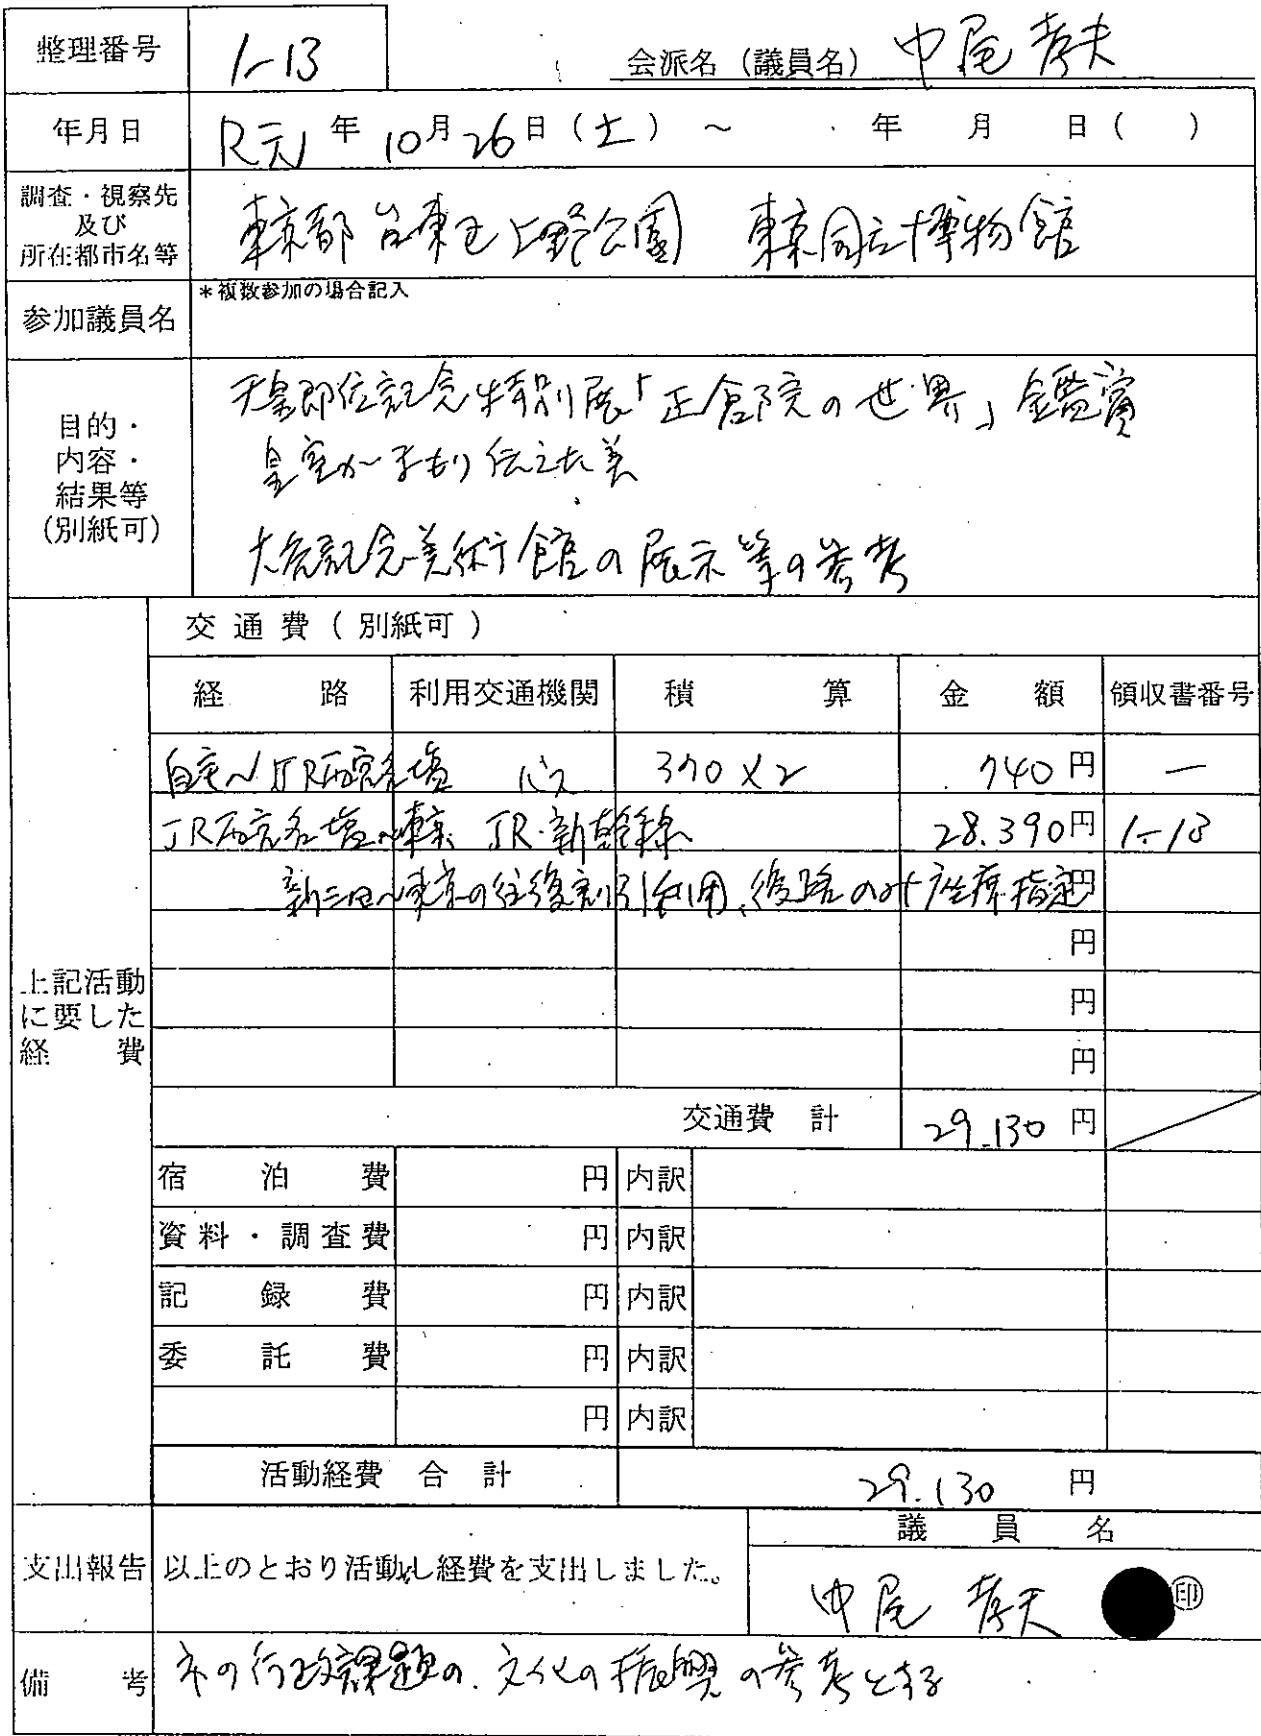 整理番号 1-13 会派名（議員名） 中尾 孝夫
年月日 R元年 10月 26日（土） ～ 年 月 日（ ）
調査・視察先及び所在都市名等 東京都台東区上野公園 東京国立博物館
参加議員名 ＊複数参加の場合記入
目的・内容・結果等（別紙可）
天皇即位記念特別展「正倉院の世界」鑑賞
皇室がまもり伝えた美
大谷記念美術館の展示等の参考
上記活動に要した経費
交通費（別紙可）
経路 利用交通機関 積算 金額 領収書番号
自宅～JR西宮名塩 バス 370×2 740円 —
JR西宮名塩～東京 JR・新幹線 28.390円 1-13
新大阪～東京の往復割引利用、復路のみ座席指定 円
円
円
円
交通費 計 29.130円
宿泊費 円 内訳
資料・調査費 円 内訳
記録費 円 内訳
委託費 円 内訳
円 内訳
活動経費 合計 29.130 円
支出報告 以上のとおり活動し経費を支出しました。
議員名
中尾 孝夫 ㊞
備考 市の行政課題の、文化の振興の参考とする